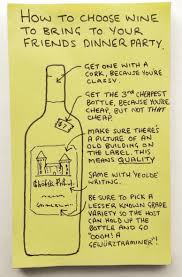 HOW TO CHOOSE WINE
TO BRING TO YOUR
FRIENDS DINNER PARTY.
GET ONE WITH A
CORK, BECAUSE YOU'RE
CLASSY.
GET THE 3RD CHEAPEST
BOTTLE, BECAUSE YOU'RE
CHEAP, BUT NOT THAT
CHEAP.
1877
MAKE SURE THERE'S
A PICTURE OF AN
OLD BUILDING ON
THE LABEL. THIS
MEANS QUALITY
SAME WITH 'YEOLDE'
WRITING.
BE SURE TO PICK A
LESSER KNOWN GRAPE
VARIETY SO THE HOST
CAN HOLD UP THE
BOTTLE AND GO
"OOOH! A
GEWÜRZTRAMINER'!